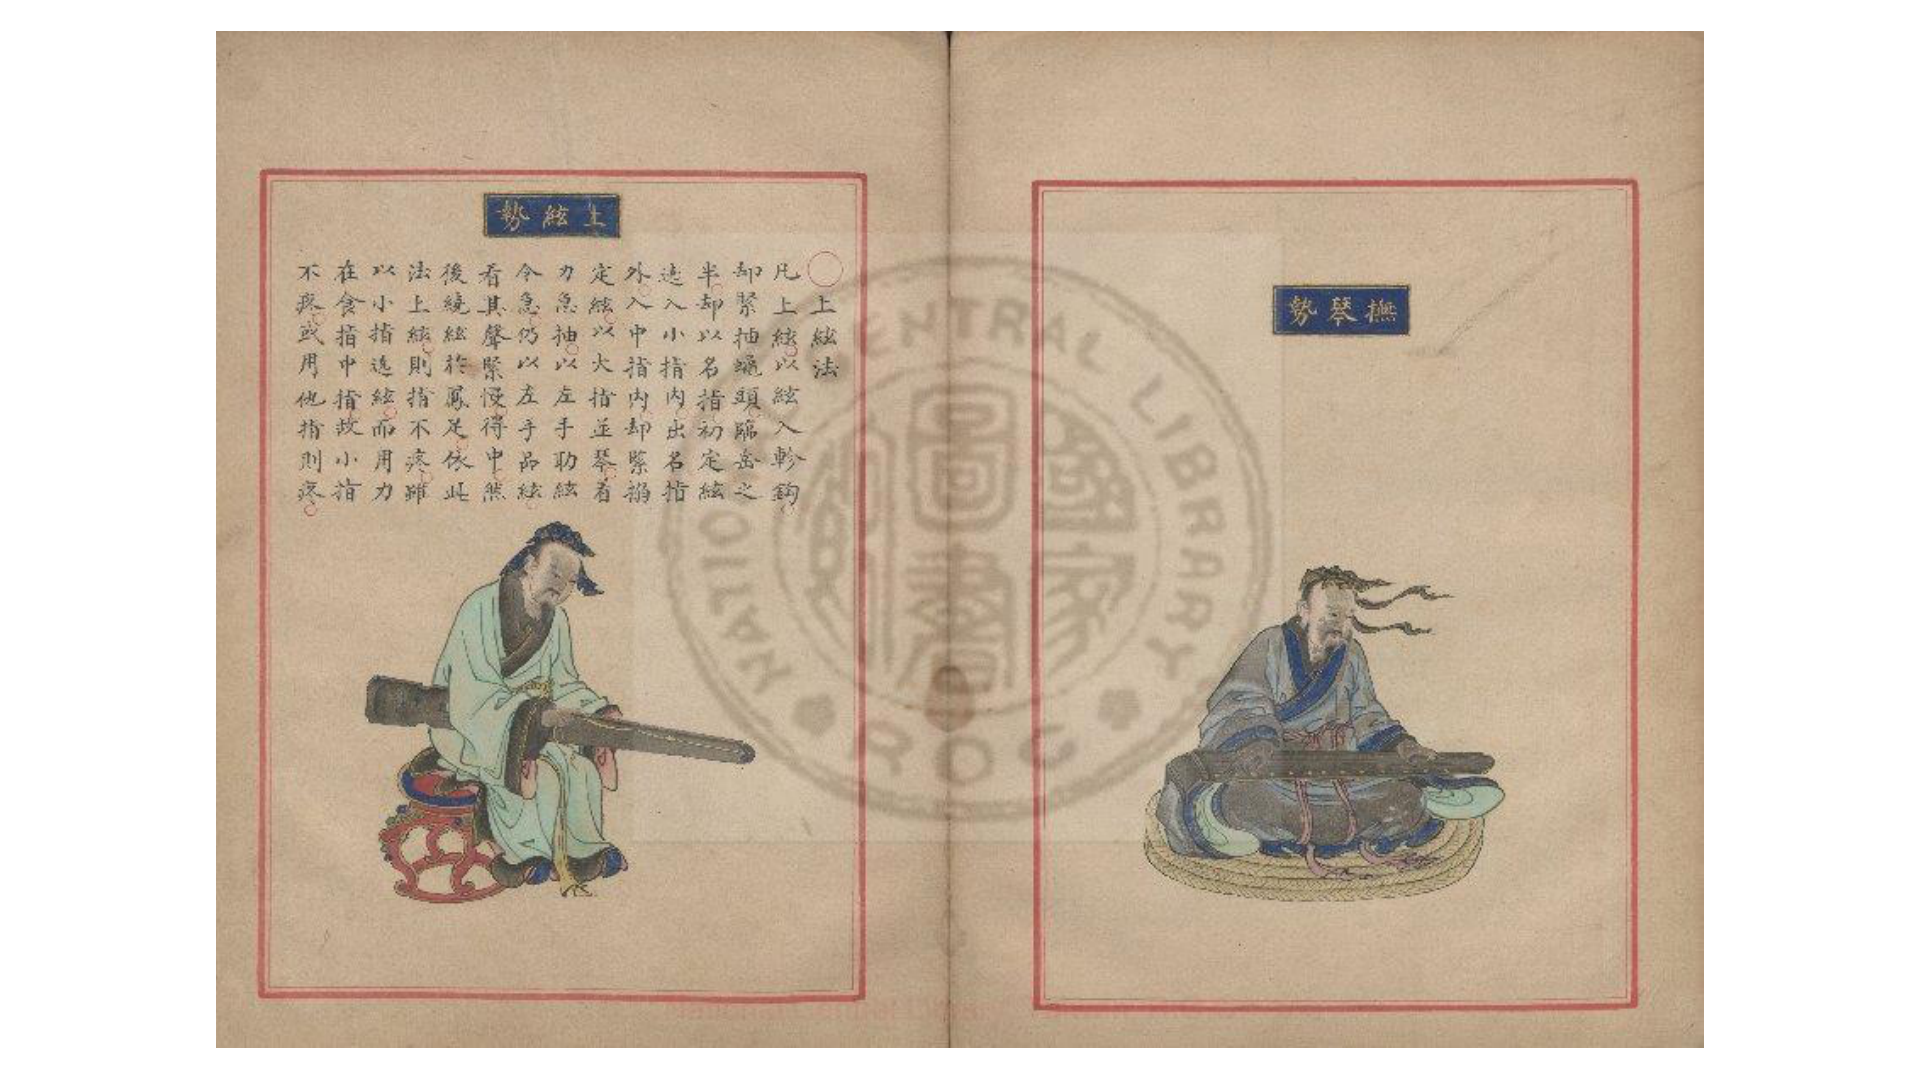 撫琴勢
上絃勢
○上絃法
凡上絃以絃入軫鈎
却緊抽蠅頭臨岳之
半却以名指初定絃
遶入小指內出名指
外入中指內却緊搦
定絃以大指並琴着
力急抽以左手助絃
令急仍以左手品絃
看其聲緊慢得中然
後繞絃於鳳足依此
法上絃則指不疼雖
以小指遶絃而用力
在食指中指故小指
不疼或用他指則疼
NATIONAL CENTRAL LIBRARY
ROC
國家圖書館